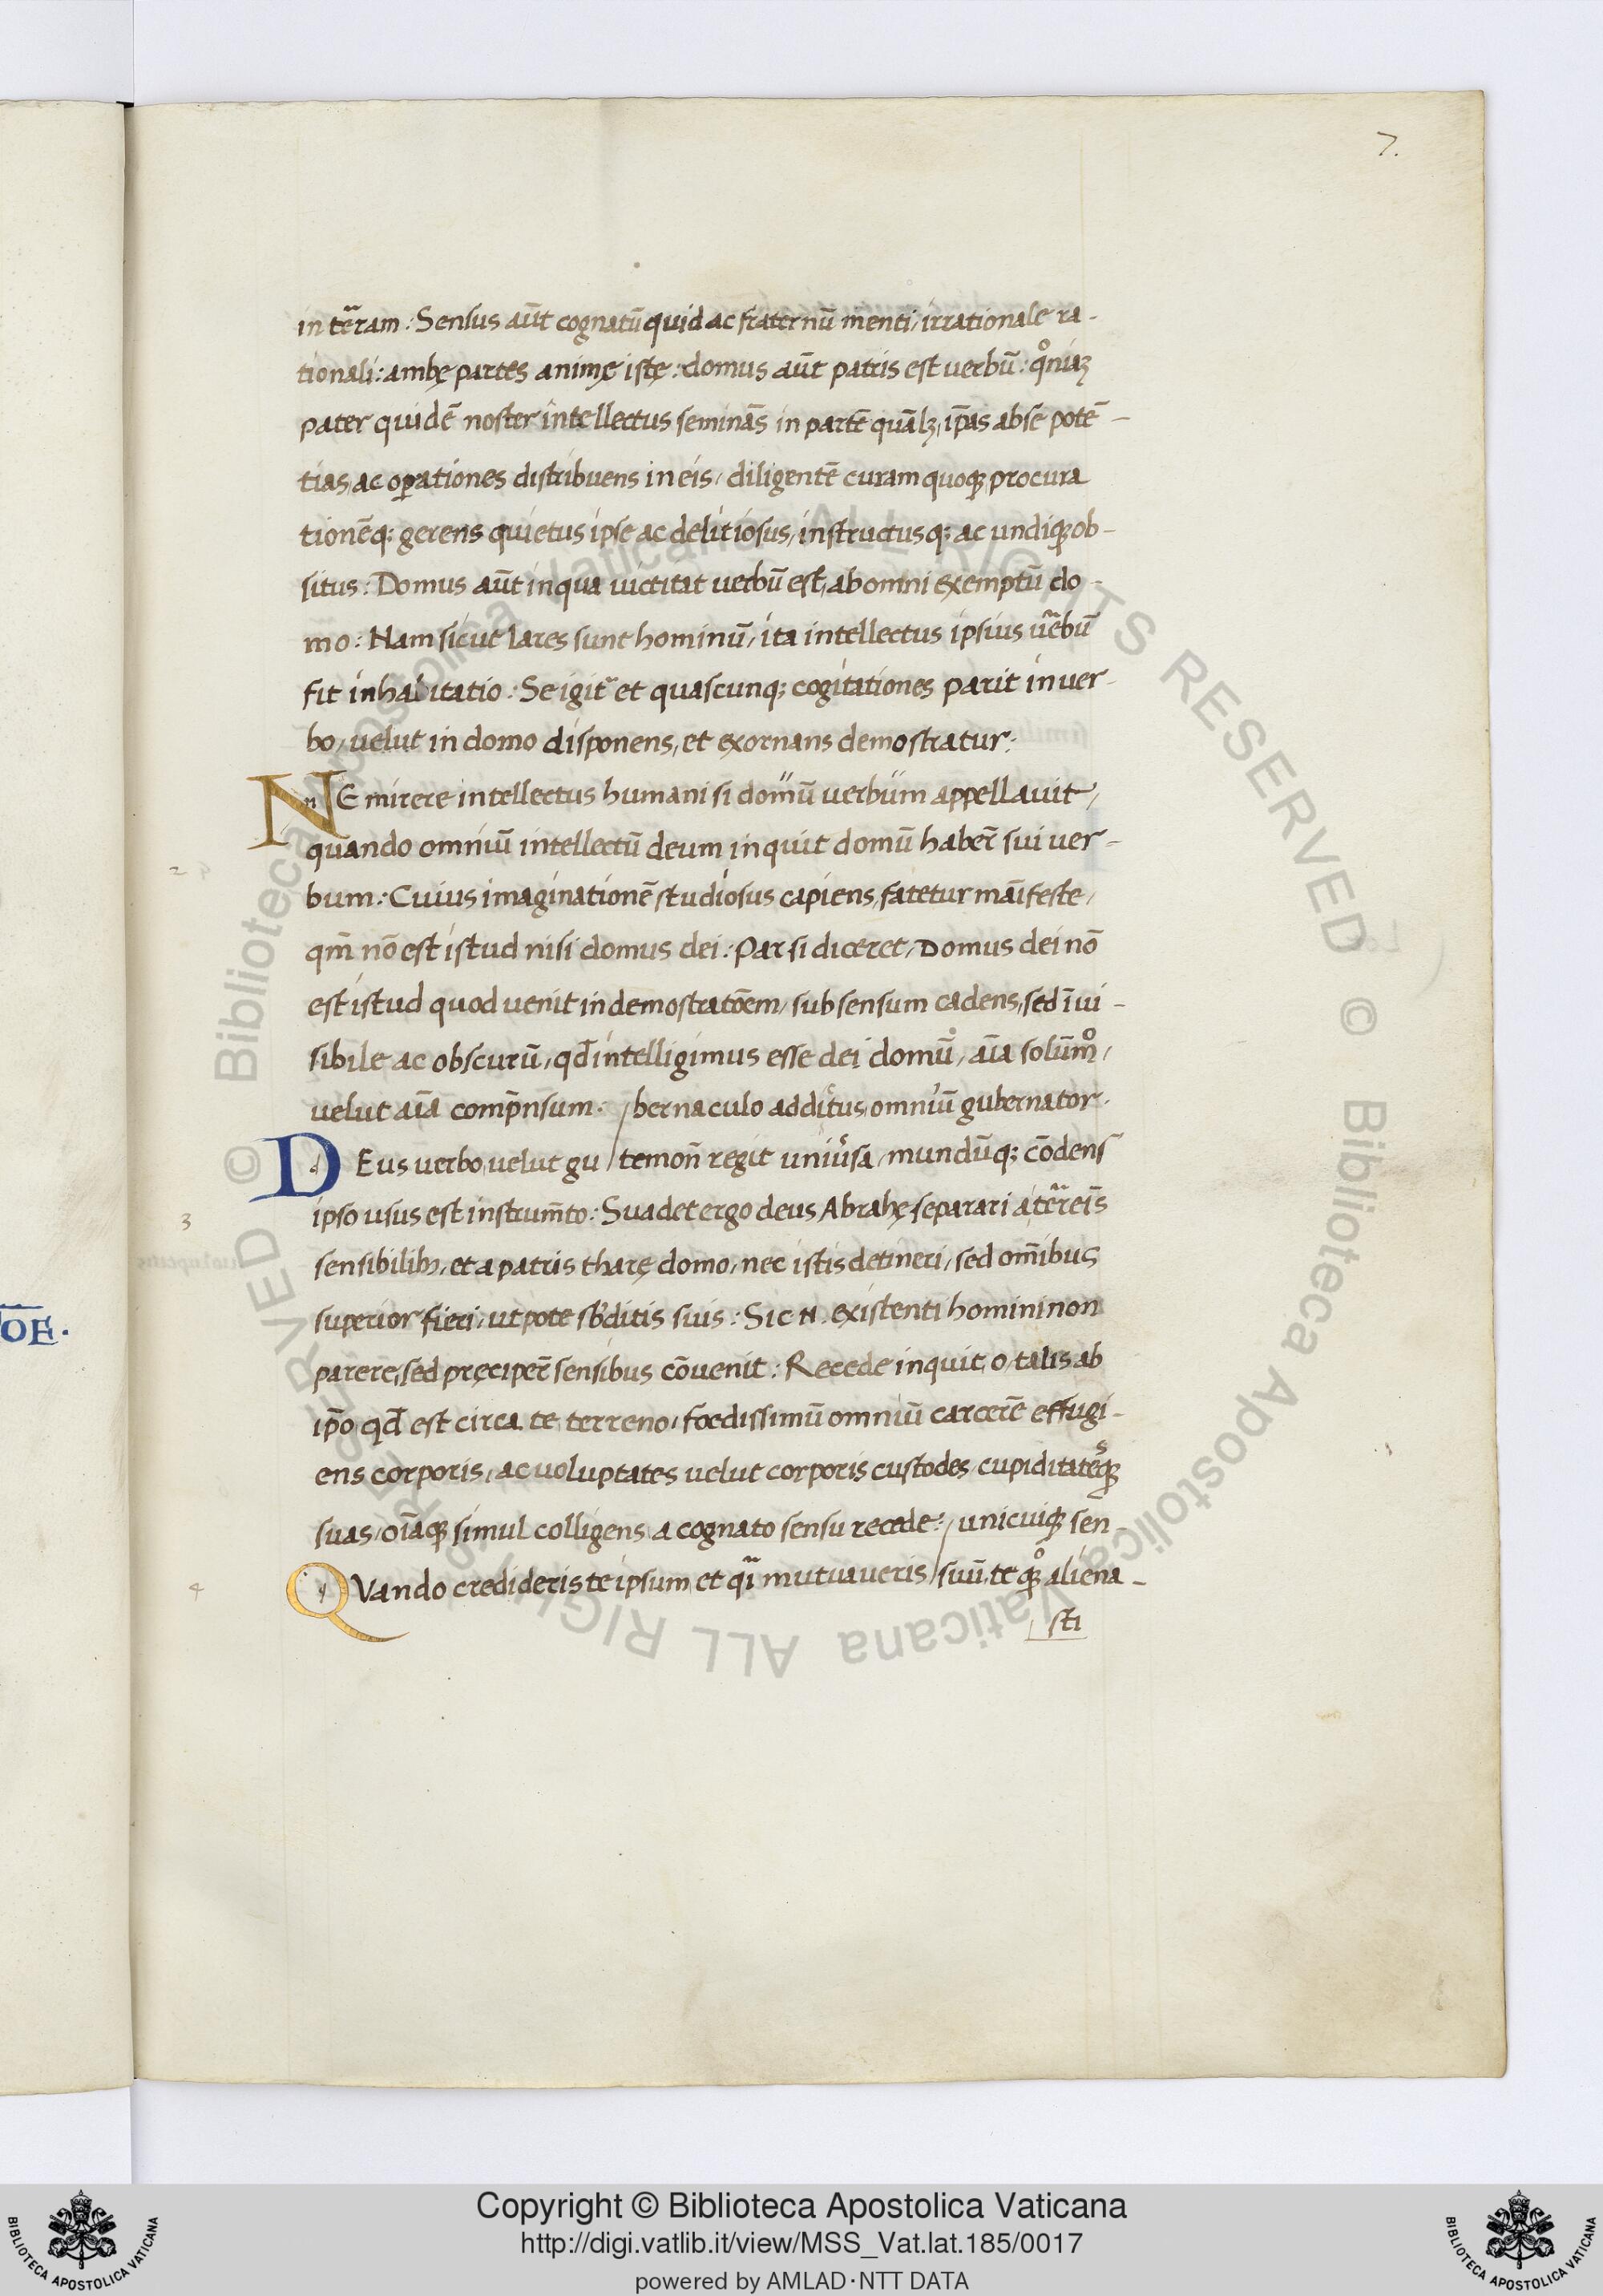 7.
in tẽram : Sensus aũt cognatũ quid ac fraternũ menti / irrationale ra-
tionali : ambę partes animę istę : domus aũt patris est uerbũ : qͦniaȝ
pater quidẽ noster intellectus seminãs in partẽ quãlȝ, ip̃as abse potẽ-
tias, ac oꝑationes distribuens in eis / diligentẽ curam quoqꝫ procura
tionẽqꝫ gerens quietus ipse ac delitiosus, instructusqꝫ ac undiqꝫ ob-
situs : Domus aũt in qua uictitat uerbũ est, ab omni exemptũ do-
mo : Nam sicut lares sunt hominũ, ita intellectus ipsius uẽbũ
fit inhabitatio : Se igit᷑ et quascunqꝫ cogitationes parit in uer-
bo, uelut in domo disponens, et exornans demostratur :
NE mirere intellectus humani si domũ uerbum appellauit /
quando omniũ intellectũ deum inquit domũ haber̃ sui uer-
2
bum : Cuius imaginationẽ studiosus capiens, fatetur mãifeste /
qm̃ nõ est istud nisi domus dei : Par si diceret, Domus dei nõ
est istud quod uenit in demostratõem, sub sensum cadens, sed ĩui-
sibile ac obscurũ, qd̃ intelligimus esse dei domũ, aĩa solũmͦ,
uelut aĩa comp̃nsum. / bernaculo additus, omniũ gubernator.
DEus uerbo, uelut gu / temoñ regit uniũsa, mundũqꝫ cõdens
3
ipso usus est instrum̃to : Suadet ergo deus Abrahę separari a tẽreis
sensibilibꝫ, et a patris tharę domo, nec istis detineri, sed om̃ibus
superior fieri, utpote sb̃ditis suis : Sic N. existenti homini non
parere, sed pręciper̃ sensibus cõuenit : Recede inquit, o, talis ab
ip̃o qd̃ est circa te terreno, foedissimũ omniũ carcerẽ effugi-
ens corporis, ac uoluptates uelut corporis custodes, cupiditatesqꝫ
suas, oĩaqꝫ simul colligens a cognato sensu recede : / unicuiqꝫ sen-
4
QVando credideris te ipsum, et qĩ mutuaueris / suũ, te qꝫͦ aliena-
sti
OE.
Copyright © Biblioteca Apostolica Vaticana
http://digi.vatlib.it/view/MSS_Vat.lat.185/0017
powered by AMLAD·NTT DATA
BIBLIOTECA APOSTOLICA VATICANA
BIBLIOTECA APOSTOLICA VATICANA
© Biblioteca Apostolica Vaticana ALL RIGHTS RESERVED © Biblioteca Apostolica Vaticana ALL RIGHTS RESERVED